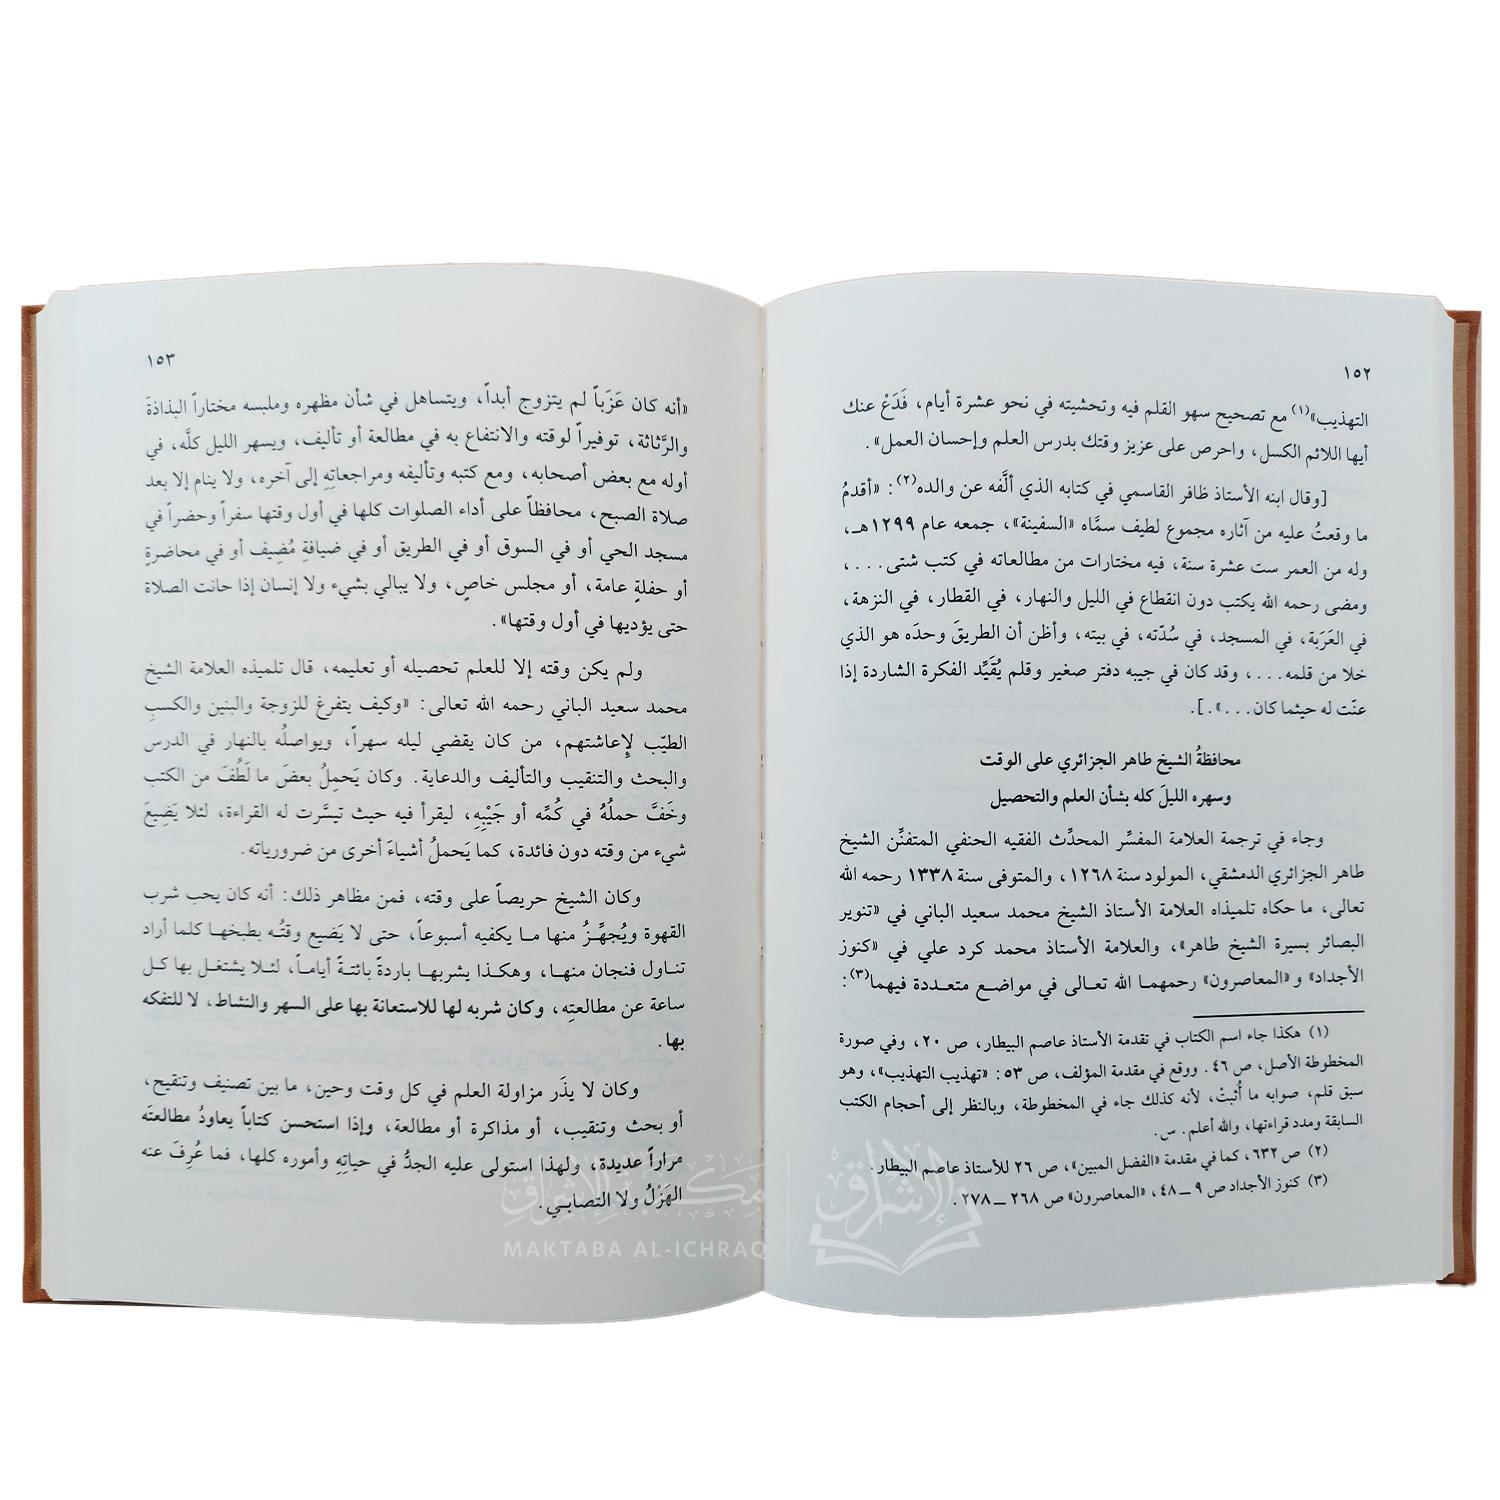 ١٥٢
التهذيب»(١) مع تصحيح سهو القلم فيه وتحشيته في نحو عشرة أيام، فَدَعْ عنك
أيها اللائم الكسل، واحرص على عزيز وقتك بدرس العلم وإحسان العمل».
[وقال ابنه الأستاذ ظافر القاسمي في كتابه الذي ألَّفه عن والده(٢): «أقدمُ
ما وقعتُ عليه من آثاره مجموع لطيف سمَّاه «السفينة»، جمعه عام ١٢٩٩هـ،
وله من العمر ست عشرة سنة، فيه مختارات من مطالعاته في كتب شتى...،
ومضى رحمه الله يكتب دون انقطاع في الليل والنهار، في القطار، في النزهة،
في العَرَبة، في المسجد، في سُدّته، في بيته، وأظن أن الطريقَ وحدَه هو الذي
خلا من قلمه...، وقد كان في جيبه دفتر صغير وقلم يُقَيِّد الفكرة الشاردة إذا
عنّت له حيثما كان...».].
محافظةُ الشيخ طاهر الجزائري على الوقت
وسهره الليلَ كله بشأن العلم والتحصيل
وجاء في ترجمة العلامة المفسِّر المحدِّث الفقيه الحنفي المتفنِّن الشيخ
طاهر الجزائري الدمشقي، المولود سنة ١٢٦٨، والمتوفى سنة ١٣٣٨ رحمه الله
تعالى، ما حكاه تلميذاه العلامة الأستاذ الشيخ محمد سعيد الباني في «تنوير
البصائر بسيرة الشيخ طاهر»، والعلامة الأستاذ محمد كرد علي في «كنوز
الأجداد» و«المعاصرون» رحمهما الله تعالى في مواضع متعددة فيهما(٣):
(١) هكذا جاء اسم الكتاب في تقدمة الأستاذ عاصم البيطار، ص ٢٠، وفي صورة
المخطوطة الأصل، ص ٤٦. ووقع في مقدمة المؤلف، ص ٥٣: «تهذيب التهذيب»، وهو
سبق قلم، صوابه ما أُثبتْ، لأنه كذلك جاء في المخطوطة، وبالنظر إلى أحجام الكتب
السابقة ومدد قراءتها، والله أعلم. س.
(٢) ص ٦٣٢، كما في مقدمة «الفضل المبين»، ص ٢٦ للأستاذ عاصم البيطار.
(٣) كنوز الأجداد ص ٩ ــ ٤٨، «المعاصرون» ص ٢٦٨ ــ ٢٧٨.
١٥٣
«أنه كان عَزَباً لم يتزوج أبداً، ويتساهل في شأن مظهره وملبسه مختاراً البذاذةَ
والرَّثاثة، توفيراً لوقته والانتفاع به في مطالعة أو تأليف، ويسهر الليل كلَّه، في
أوله مع بعض أصحابه، ومع كتبه وتأليفه ومراجعاتِهِ إلى آخره، ولا ينام إلا بعد
صلاة الصبح، محافظاً على أداء الصلوات كلها في أول وقتها سفراً وحضراً في
مسجد الحي أو في السوق أو في الطريق أو في ضيافةِ مُضِيف أو في محاضرةٍ
أو حفلةٍ عامة، أو مجلس خاصٍ، ولا يبالي بشيء ولا إنسان إذا حانت الصلاة
حتى يؤديها في أول وقتها».
ولم يكن وقته إلا للعلم تحصيله أو تعليمه، قال تلميذه العلامة الشيخ
محمد سعيد الباني رحمه الله تعالى: «وكيف يتفرغ للزوجة والبنين والكسبِ
الطيّب لإعاشتهم، من كان يقضي ليله سهراً، ويواصلُه بالنهار في الدرس
والبحث والتنقيب والتأليف والدعاية. وكان يَحمِلُ بعضَ ما لَطُفَ من الكتب
وخَفَّ حملُهُ في كُمِّه أو جَيْبِهِ، ليقرأ فيه حيث تيسَّرت له القراءة، لئلا يَضِيعَ
شيء من وقته دون فائدة، كما يَحملُ أشياءَ أخرى من ضرورياته.
وكان الشيخ حريصاً على وقته، فمن مظاهر ذلك: أنه كان يحب شرب
القهوة ويُجهِّزُ منها ما يكفيه أسبوعاً، حتى لا يَضيع وقتُه بطبخها كلما أراد
تناول فنجان منها، وهكذا يشربها باردةً بائتةً أياماً، لئلا يشتغل بها كل
ساعة عن مطالعتِه، وكان شربه لها للاستعانة بها على السهر والنشاط، لا للتفكه
بها.
وكان لا يذَر مزاولة العلم في كل وقت وحين، ما بين تصنيف وتنقيح،
أو بحث وتنقيب، أو مذاكرة أو مطالعة، وإذا استحسن كتاباً يعاودُ مطالعتَه
مراراً عديدة، ولهذا استولى عليه الجدُّ في حياتِهِ وأموره كلها، فما عُرِفَ عنه
الهَزْلُ ولا التصابي.
مكتبة الإشراق
MAKTABA AL-ICHRAQ
الإشراق